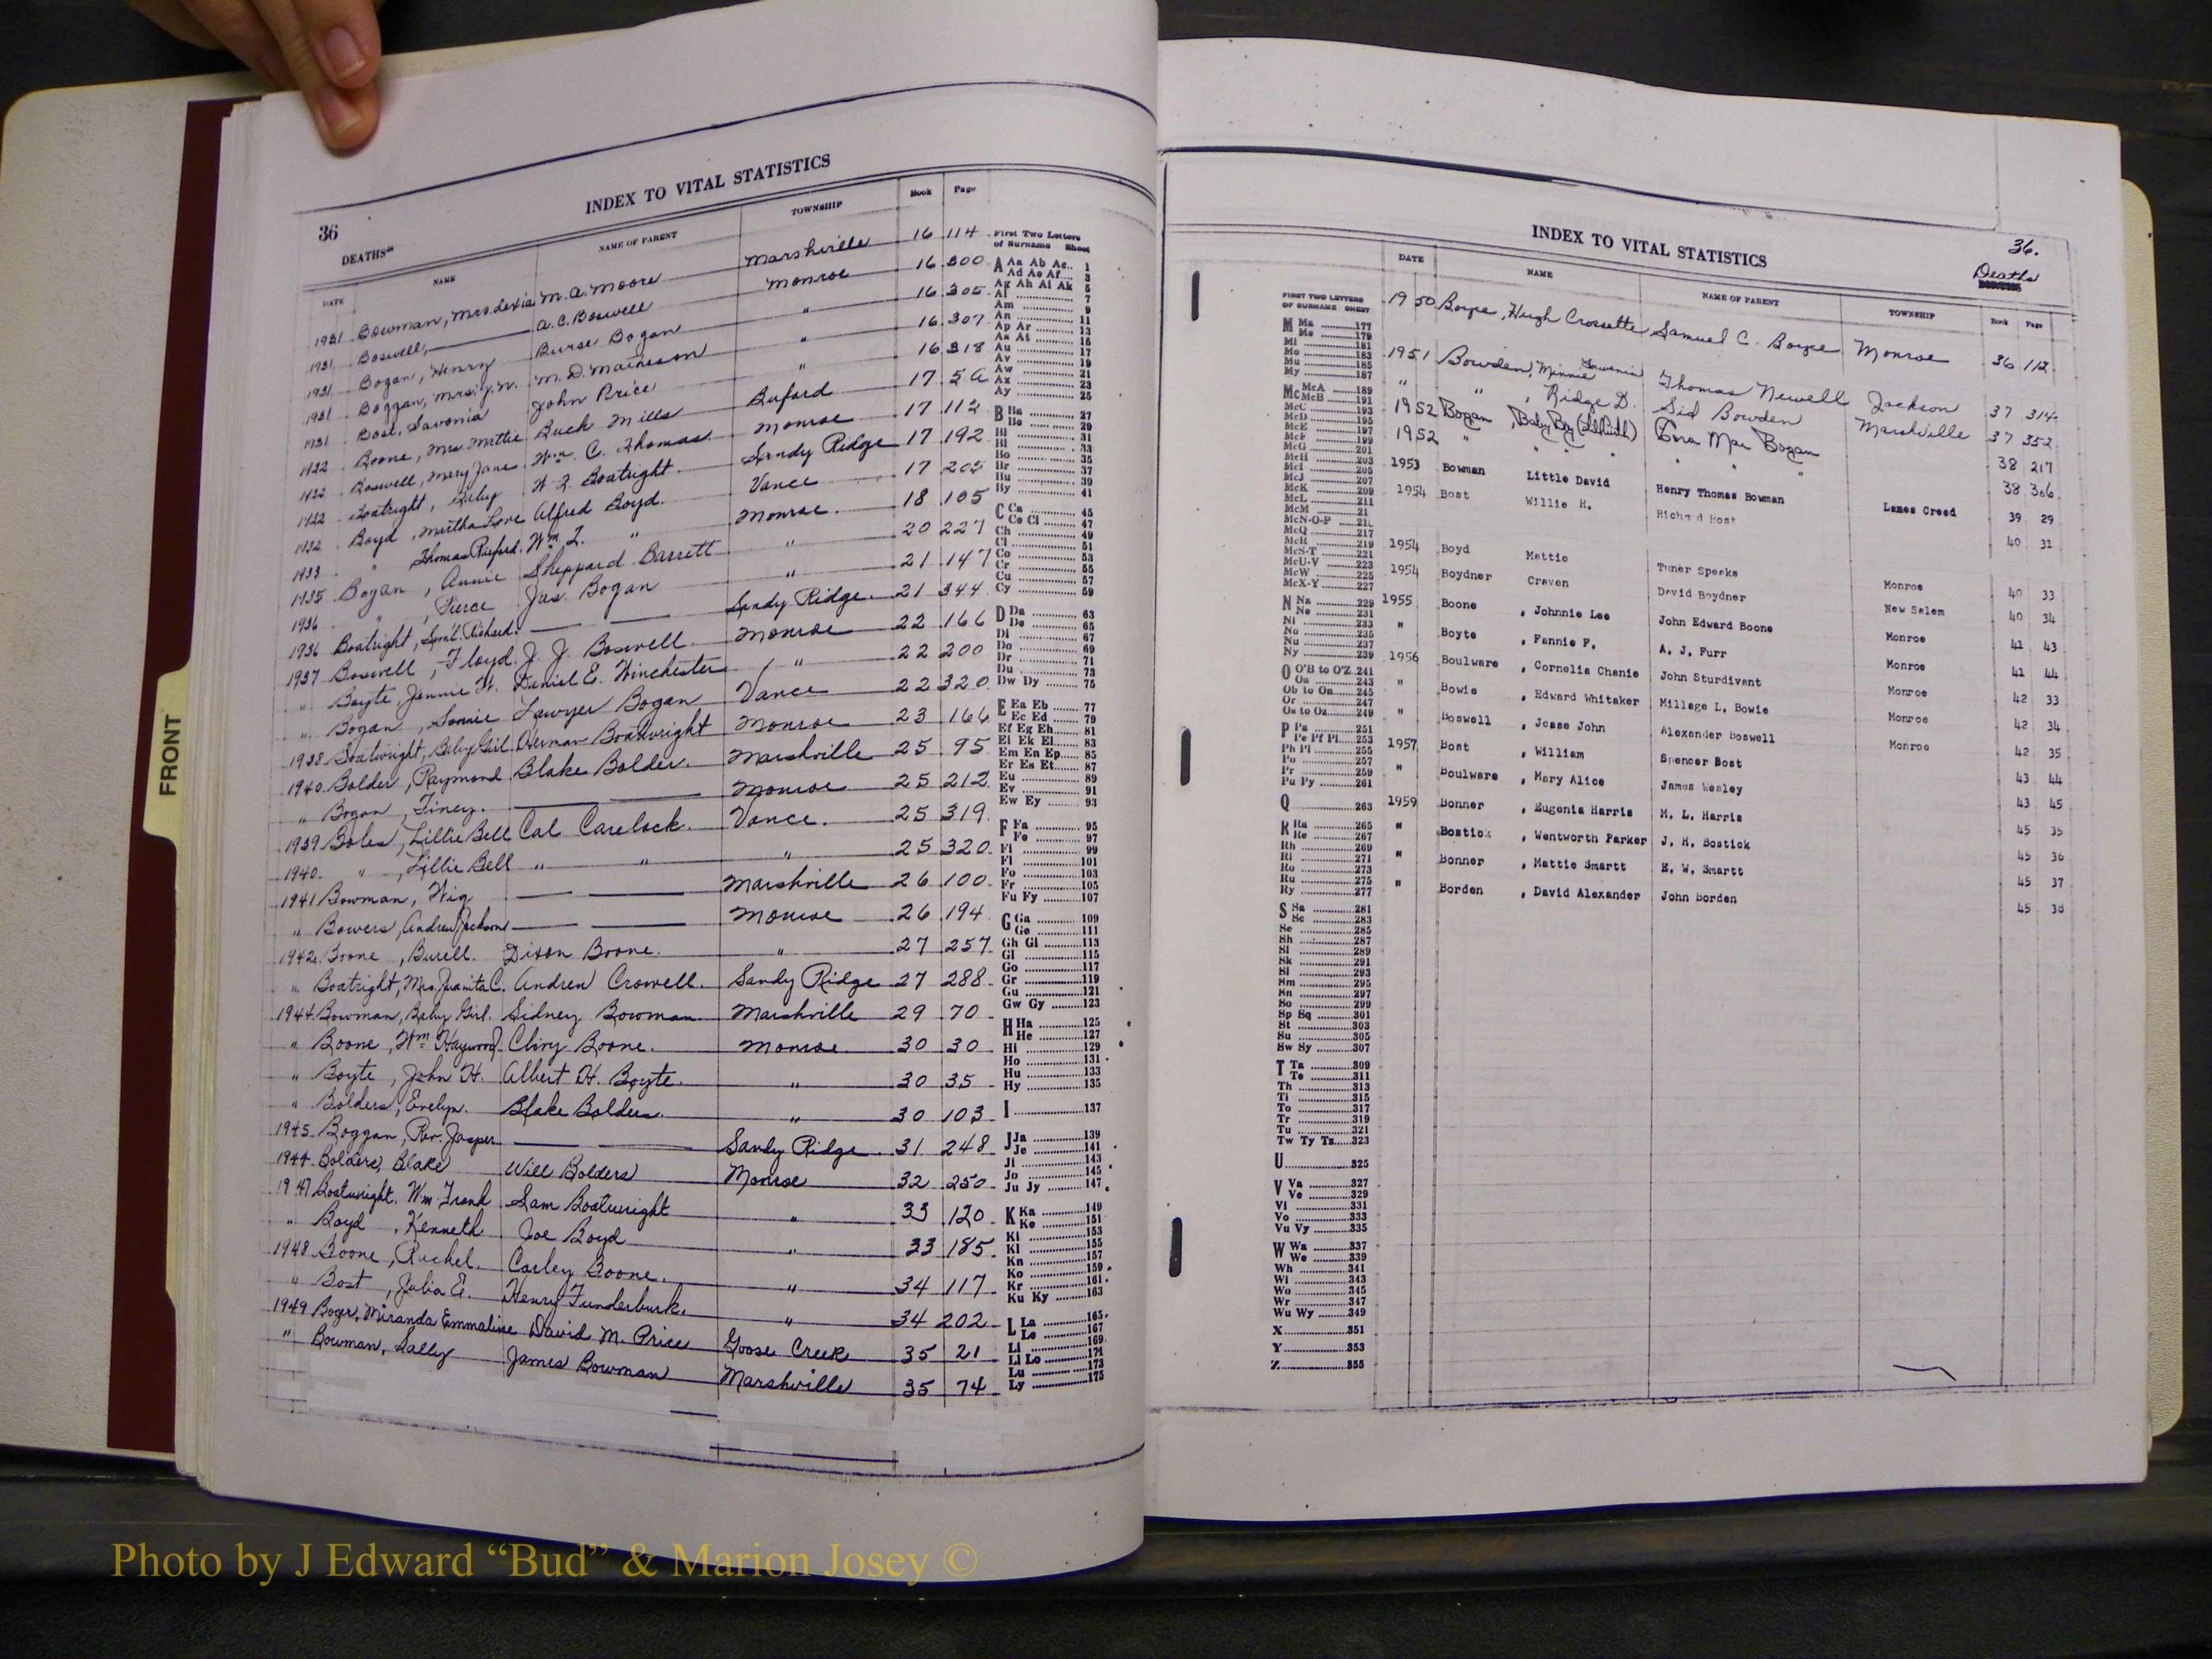 FRONT
36
INDEX TO VITAL STATISTICS
DEATHS
DATE NAME NAME OF PARENT TOWNSHIP Book Page
1931 Bowman, Mrs. M. A. Moore Marshville 16 114
1931 Boswell, A. C. Boswell Monroe 16 300
1931 Bogan, Henry Burse Bogan " 16 305
1931 Boggan, Mrs. J. W. M. D. " 16 307
1931 Bost, Savonia John Price " 16 318
1932 Boone, Mrs. Mittie Buck Mills Buford 17 5a
1932 Boswell, Mary Jane Wm. C. Thomas Monroe 17 112
1932 Boatright, Boatright Sandy Ridge 17 192
1932 Boyd, Love Alfred Boyd Vance 17 205
1933 " Thomas Wm. L. " Monroe 18 105
1935 Bogan, Annie Sheppard Barrett " 20 227
1936 " , Pierce Jas. Bogan " 21 147
1936 Boatright, Saml. Richard Sandy Ridge 21 344
1937 Boswell, Floyd J. J. Boswell Monroe 22 166
" Boyte, Jennie H. Daniel E. Winchester " 22 200
" Bogan, Sawyer Bogan Vance 22 320
1938 Boatwright, Baby Girl Herman Boatwright Monroe 23 166
1940 Bolder, Raymond Blake Bolder Marshville 25 95
" Bogan, Monroe 25 212
1939 Boles, Lillie Bell Cal Carelock Vance 25 319
1940 " , Lillie Bell " " " 25 320
1941 Bowman, Marshville 26 100
" Bowers, Andrew Jackson Monroe 26 194
1942 Boone, Burell Dixon Boone " 27 257
" Boatright, Mrs. Juanita C. Andrew Crowell Sandy Ridge 27 288
1944 Bowman, Baby Girl Sidney Bowman Marshville 29 70
" Boone, Wm Haywood Boone Monroe 30 30
" Boyte, John H. Albert H. Boyte " 30 35
" Bolders, Evelyn Blake Bolders " 30 103
1945 Boggan, Rev. Jasper Sandy Ridge 31 248
1944 Bolders, Blake Will Bolders Monroe 32 250
1947 Boatwright, Wm. Frank Sam Boatwright " 33 120
" Boyd, Kenneth Joe Boyd " 33 185
1948 Boone, Rachel Carley Boone " 34 117
" Bost, Julia E. Henry Funderburk " 34 202
1949 Boger, Miranda Emmaline David M. Price Goose Creek 35 21
" Bowman, Sally James Bowman Marshville 35 74
First Two Letters
of Surname Sheet
A Aa Ab Ac 1
Ad Ae Af 3
Ag Ah Ai Ak 5
Al 7
Am 9
An 11
Ap Ar 13
As At 15
Au 17
Av 19
Aw 21
Ax 23
Ay 25
B Ba 27
Be 29
Bi 31
Bl 33
Bo 35
Br 37
Bu 39
By 41
C Ca 45
Ce Ci 47
Ch 49
Cl 51
Co 53
Cr 55
Cu 57
Cy 59
D Da 63
De 65
Di 67
Do 69
Dr 71
Du 73
Dw Dy 75
E Ea Eb 77
Ec Ed 79
Ef Eg Eh 81
Ei Ek El 83
Em En Ep 85
Er Es Et 87
Eu 89
Ev 91
Ew Ey 93
F Fa 95
Fe 97
Fi 99
Fl 101
Fo 103
Fr 105
Fu Fy 107
G Ga 109
Ge 111
Gh Gi 113
Gl 115
Go 117
Gr 119
Gu 121
Gw Gy 123
H Ha 125
He 127
Hi 129
Ho 131
Hu 133
Hy 135
I 137
J Ja 139
Je 141
Ji 143
Jo 145
Ju Jy 147
K Ka 149
Ke 151
Ki 153
Kl 155
Kn 157
Ko 159
Kr 161
Ku Ky 163
L La 165
Le 167
Li 169
Ll Lo 171
Lu 173
Ly 175
INDEX TO VITAL STATISTICS
36.
Deaths
DATE NAME NAME OF PARENT TOWNSHIP Book Page
1950 Boyce, Hugh Crossette Samuel C. Boyce Monroe 36 112
1951 Bowden, Minnie Thomas Newell Jackson 37 314
" " , Ridge D. Sid Bowden Marshville 37 352
1952 Bogan, Baby Boy Mae Bogan 38 217
1952 " " " " " " 38 306
1953 Bowman Little David Henry Thomas Bowman Lanes Creed 39 29
1954 Bost Willie H. 40 31
1954 Boyd Mattie Tuner Speaks Monroe 40 33
1954 Boydner Craven David Boydner New Salem 40 34
1955 Boone , Johnnie Lee John Edward Boone Monroe 41 43
" Boyte , Fannie F. A. J. Furr Monroe 41 44
1956 Boulware , Cornelia Chanie John Sturdivant Monroe 42 33
" Bowie , Edward Whitaker Millage L. Bowie Monroe 42 34
" Boswell , Jesse John Alexander Boswell Monroe 42 35
1957 Bost , William Spencer Bost 43 44
" Boulware , Mary Alice James Wesley 43 45
1959 Bonner , Eugenia Harris M. L. Harris 45 35
" Bostick , Wentworth Parker J. H. Bostick 45 36
" Bonner , Mattie Smartt E. W. Smartt 45 37
" Borden , David Alexander John Borden 45 38
FIRST TWO LETTERS
OF SURNAME SHEET
M Ma 177
Me 179
Mi 181
Mo 183
Mu 185
My 187
Mc McA 189
McB 191
McC 193
McD 195
McE 197
McF 199
McG 201
McH 203
McI 205
McJ 207
McK 209
McL 211
McM 21
McN-O-P 21
McQ 217
McR 219
McS-T 221
McU-V 223
McW 225
McX-Y 227
N Na 229
Ne 231
Ni 233
No 235
Nu 237
Ny 239
O O'B to O'Z 241
Oa 243
Ob to On 245
Or 247
Os to Oz 249
P Pa 251
Pe Pf Pi 253
Ph Pl 255
Po 257
Pr 259
Pu Py 261
Q 263
R Ra 265
Re 267
Rh 269
Ri 271
Ro 273
Ru 275
Ry 277
S Sa 281
Sc 283
Se 285
Sh 287
Si 289
Sk 291
Sl 293
Sm 295
Sn 297
So 299
Sp Sq 301
St 303
Su 305
Sw Sy 307
T Ta 309
Te 311
Th 313
Ti 315
To 317
Tr 319
Tu 321
Tw Ty Tz 323
U 325
V Va 327
Ve 329
Vi 331
Vo 333
Vu Vy 335
W Wa 337
We 339
Wh 341
Wi 343
Wo 345
Wr 347
Wu Wy 349
X 351
Y 353
Z 355
Photo by J Edward “Bud” & Marion Josey ©